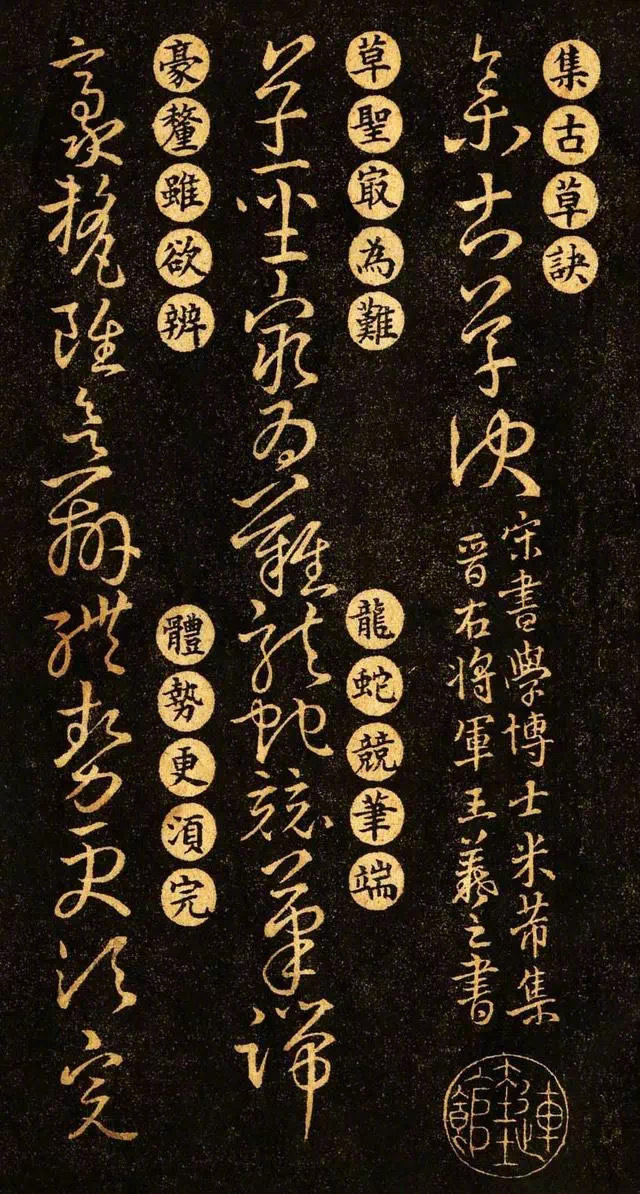 集古草訣
集古草訣
宋書學博士米芾集
晉右将軍王羲之書
草聖㝡為難
龍蛇競筆端
草聖㝡為難龍蛇競筆端
豪釐雖欲辨
體勢更湏完
豪釐雖欲辨體勢更湏完